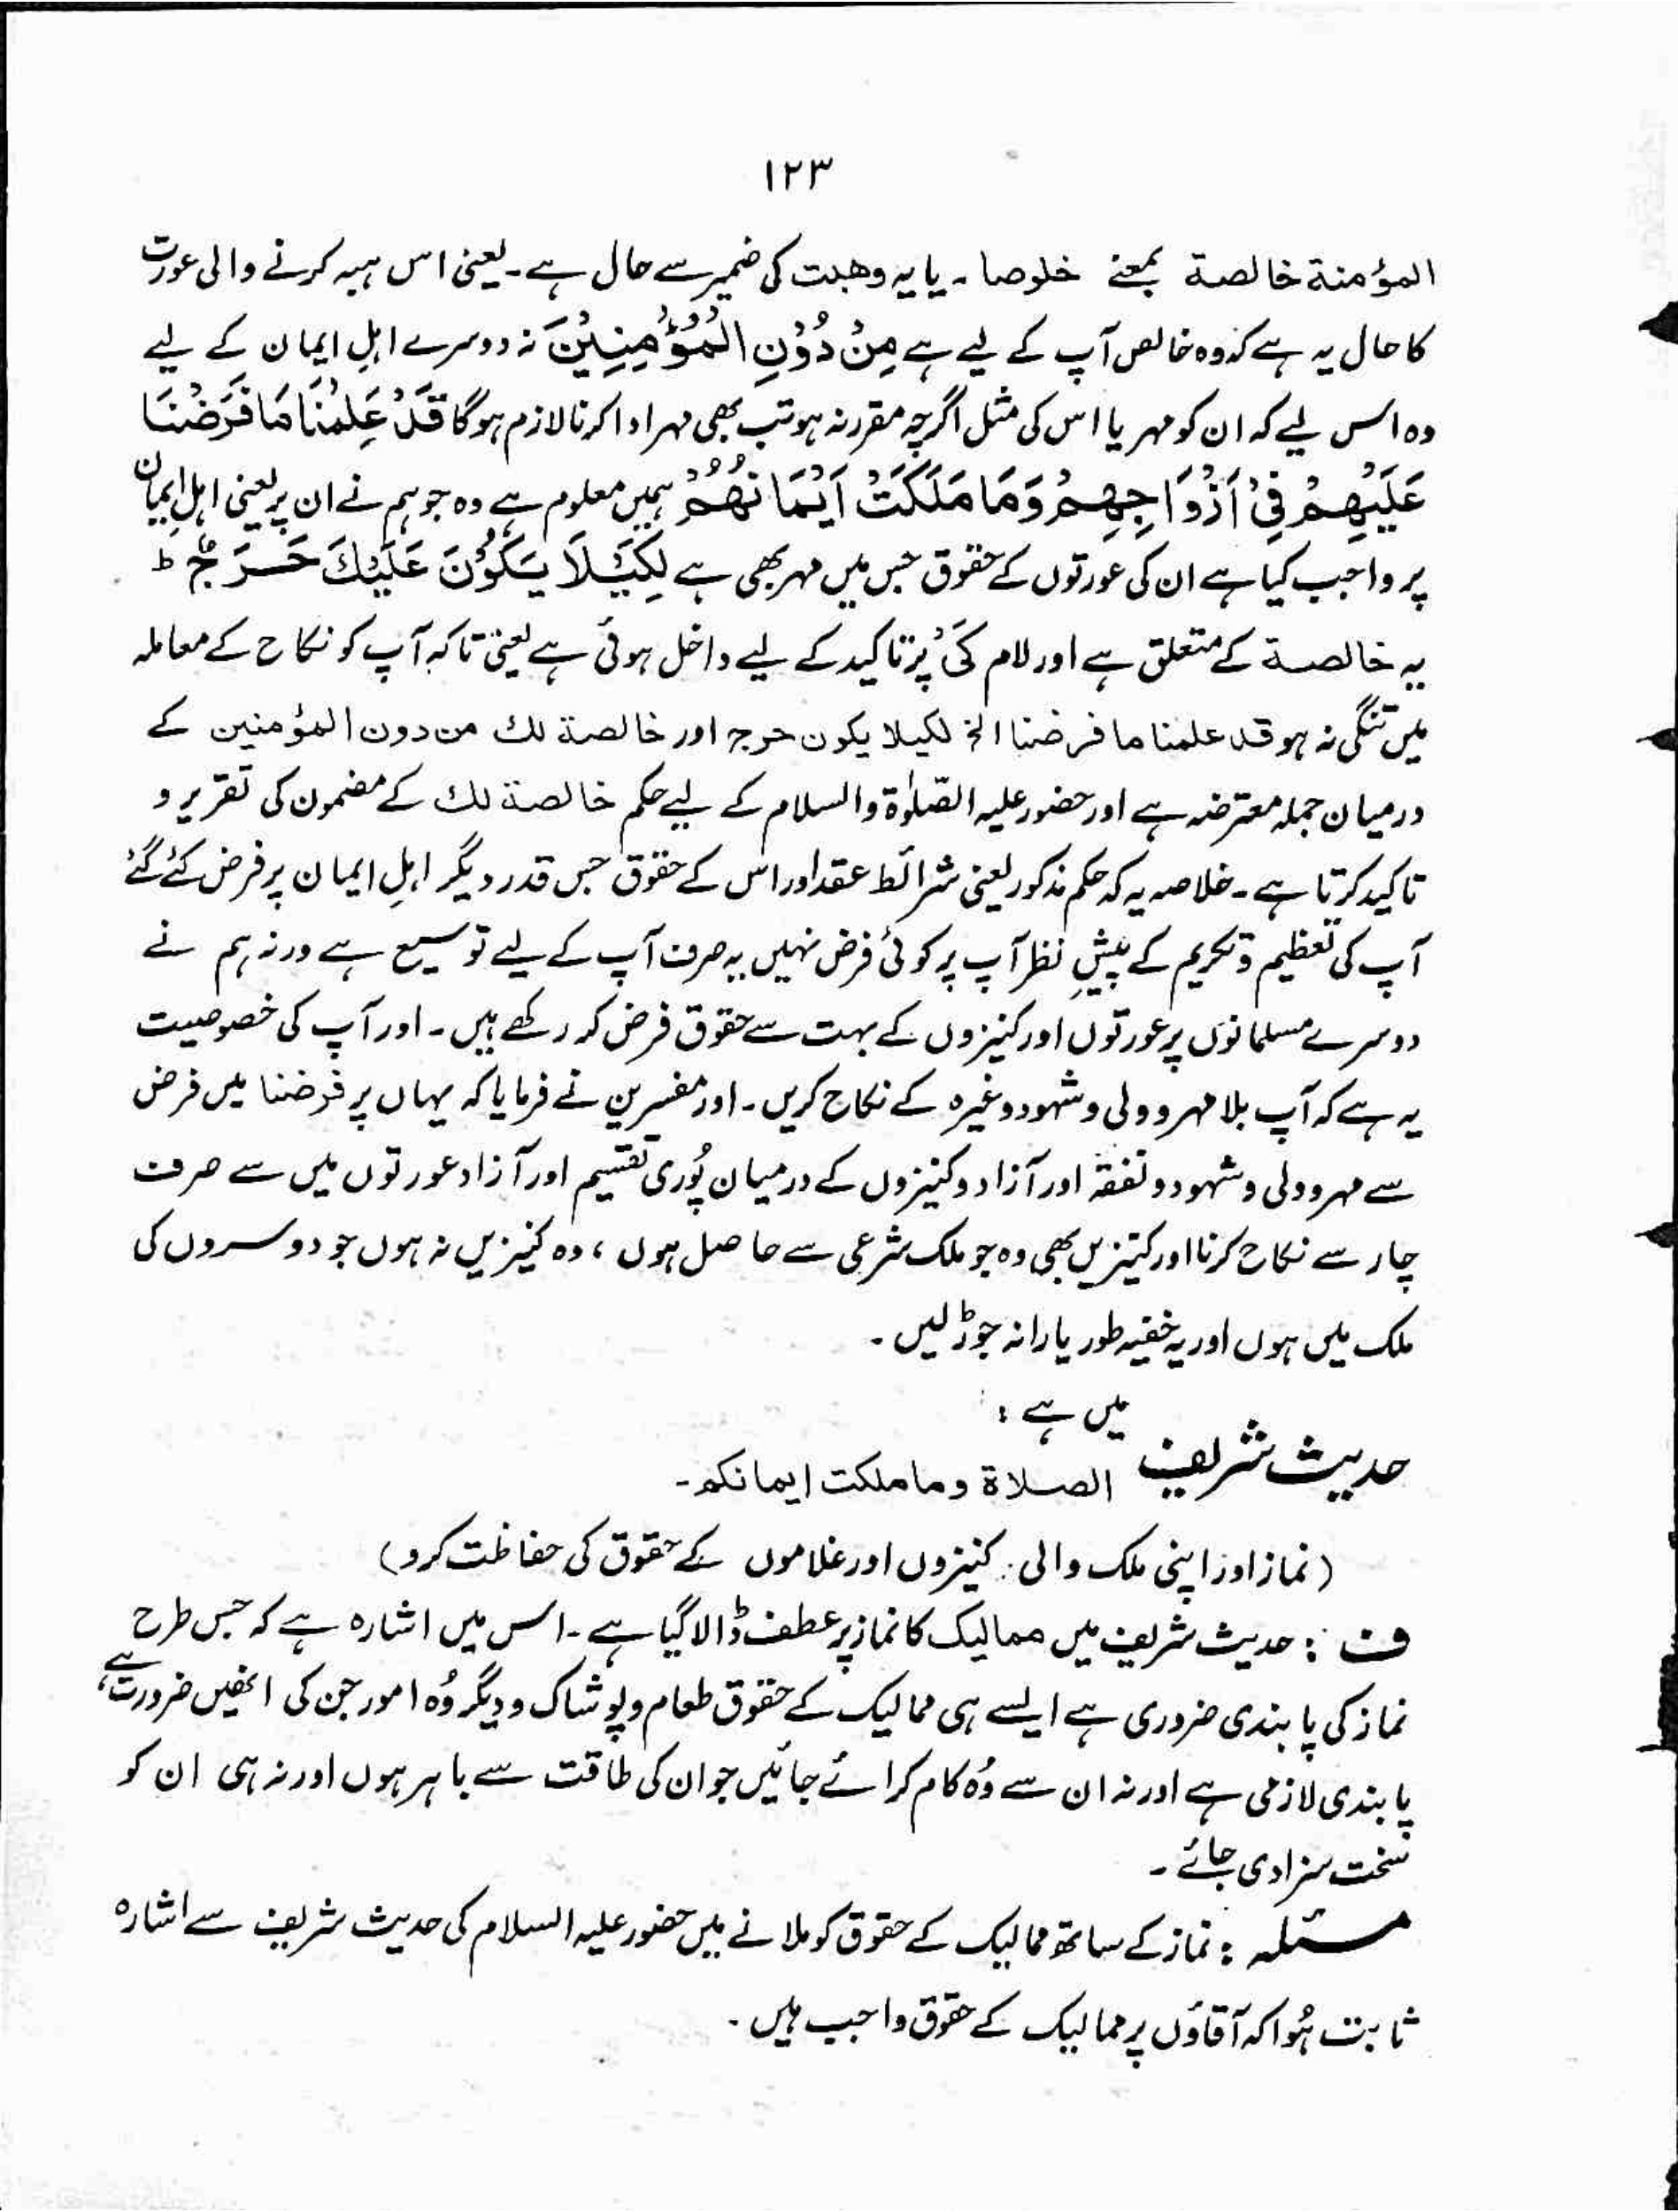 ۱۲۳
المؤمنة خالصة بمعنے خلوصا ۔ یا یہ وھبت کی ضمیر سے حال ہے ۔ یعنی اس ہبہ کرنے والی عورت
کا حال یہ ہے کہ وہ خالص آپ کے لیے ہے مِنْ دُوْنِ الْمُؤْمِنِیْنَ نہ دوسرے اہلِ ایمان کے لیے
وہ اس لیے کہ ان کو مہر یا اس کی مثل اگرچہ مقرر نہ ہو تب بھی مہر ادا کرنا لازم ہوگا قَدْ عَلِمْنَا مَا فَرَضْنَا
عَلَیْهِمْ فِیْ اَزْوَاجِهِمْ وَمَا مَلَكَتْ اَیْمَانُهُمْ ہمیں معلوم ہے وہ جو ہم نے ان پر یعنی اہلِ ایمان
پر واجب کیا ہے ان کی عورتوں کے حقوق جس میں مہر بھی ہے لِكَیْلَا یَكُوْنَ عَلَیْكَ حَرَجٌ ط
یہ خالصة کے متعلق ہے اور لام کَیْ پر تاکید کے لیے داخل ہوئی ہے یعنی تاکہ آپ کو نکاح کے معاملہ
میں تنگی نہ ہو قد علمنا ما فرضنا الخ لکیلا یکون حرج اور خالصة لك من دون المؤمنین کے
درمیان جملہ معترضہ ہے اور حضور علیہ الصّلوٰة والسلام کے لیے حکم خالصة لك کے مضمون کی تقریر و
تاکید کرتا ہے ۔ خلاصہ یہ کہ حکم مذکور یعنی شرائط عقد اور اس کے حقوق جس قدر دیگر اہلِ ایمان پر فرض کئے گئے
آپ کی تعظیم و تکریم کے پیشِ نظر آپ پر کوئی فرض نہیں یہ صرف آپ کے لیے توسیع ہے ورنہ ہم نے
دوسرے مسلمانوں پر عورتوں اور کنیزوں کے بہت سے حقوق فرض کر رکھے ہیں ۔ اور آپ کی خصوصیت
یہ ہے کہ آپ بلا مہر و ولی و شہود وغیرہ کے نکاح کریں ۔ اور مفسرین نے فرمایا کہ یہاں پر فرضنا میں فرض
سے مہر و ولی و شہود و نفقہ اور آزاد و کنیزوں کے درمیان پُوری تقسیم اور آزاد عورتوں میں سے صرف
چار سے نکاح کرنا اور کنیزیں بھی وہ جو ملک شرعی سے حاصل ہوں ، وہ کنیزیں نہ ہوں جو دوسروں کی
ملک میں ہوں اور یہ خفیہ طور یارانہ جوڑ لیں ۔
حدیث شریف میں ہے :
الصلاة وما ملکت ایمانکم ۔
(نماز اور اپنی ملک والی کنیزوں اور غلاموں کے حقوق کی حفاظت کرو)
ف : حدیث شریف میں ممالیک کا نماز پر عطف ڈالا گیا ہے ۔ اس میں اشارہ ہے کہ جس طرح
نماز کی پابندی ضروری ہے ایسے ہی ممالیک کے حقوق طعام و پوشاک و دیگر وُہ امور جن کی انھیں ضرورت ہے،
پابندی لازمی ہے اور نہ ان سے وُہ کام کرائے جائیں جو ان کی طاقت سے باہر ہوں اور نہ ہی ان کو
سخت سزا دی جائے ۔
مسئلہ : نماز کے ساتھ ممالیک کے حقوق کو ملانے میں حضور علیہ السلام کی حدیث شریف سے اشارہ
ثابت ہُوا کہ آقاؤں پر ممالیک کے حقوق واجب ہیں ۔